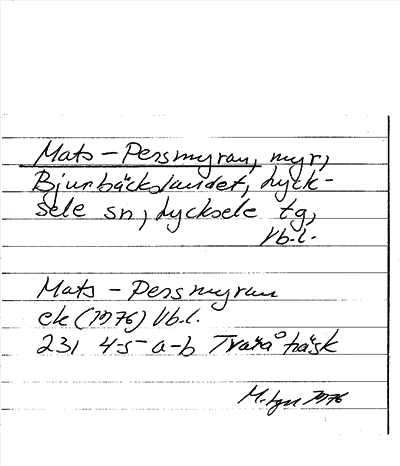 Mats-Persmyran, myr,
Bjurbäckslandet, Lyck-
sele sn, Lycksele tg,
Vb.l.
Mats-Persmyran
ek (1976) Vb.l.
23I 4-5 a-b Tvaråträsk
1976